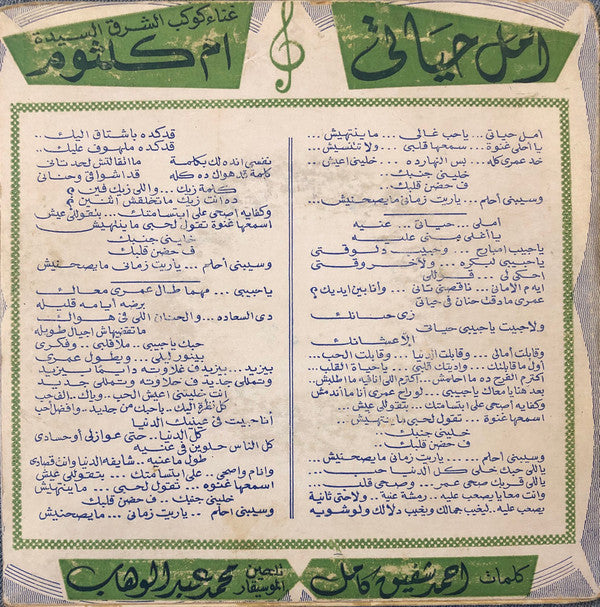 أمل حياتي
غناء كوكب الشرق السيدة
ام كلثوم
امل حياتي ... ياحب غالي ... ما ينتهيش
يا احلى غنوة ... سمعها قلبي ... ولا تنسيش
خد عمري كله ... بس النهارده ... خليني اعيش
خليني جنبك ..
ف حضن قلبك ..
وسيبني أحلم ... ياريت زماني مايصحنيش ...
أملى ... حياتي ... عنيه
يا أغلى مني عليه
ياحبيب امبارح ... وحبيب دلوقتي
يا حبيبي لبكره ... ولآخر وقتي
احكي لي ... قول لي
ايه م الأماني ... ناقصني تاني ... وانا بين ايديك ؟
عمري ما دقت حنان في حياتي
زى حنانك
ولا حبيت ياحبيبي حياتي
الا عشانك
وقابلت أمالي ... وقابلت الدنيا ... وقابلت الحب ...
أول ما قابلتك ... واديتك قلبي ... ياحياة القلب ...
اكتر م الفرح ده ما احلمش ... اكتر م اللي انا فيه ما اطلبش
بعد هنايا معاك يا حبيبي .. لو راح عمري أنا ما اندمش
وكفايه اصحى على ابتسامتك ... بتقول لي عيش
اسمعها غنوه ... تقول لحبي ما ينتهيش ...
خليني جنبك ..
ف حضن قلبك ..
وسيبني أحلم ... ياريت زماني مايصحنيش ...
يا للي حبك خلى كل الدنيا حب ...
يا للي قربك صحى عمر ... وصحى قلب ...
وانت معايا يصعب عليه .. رمشة عنيه .. ولا حتى ثانية
يصعب عليه .. ليغيب جمالك ويغيب دلالك ولو شويه
قد كده باشتاق اليك ..
قد كده ملهوف عليك ..
نفسي اندهلك بكلمة ما اتقالتش لحد تاني
كلمة قد هواك ده كله قد اشواقي وحناني
كلمة زيك ... واللي زيك فين ؟
ده انت زيك ما تخلقش اتنين ؟
وكفايه اصحى على ابتسامتك ... بتقول لي عيش
اسمعها غنوة تقول لحبي ما ينتهيش
خليني جنبك
ف حضن قلبك
وسيبني احلم ... ياريت زماني ما يصحنيش
ياحبيبي ... مهما طال عمري معاك
برضه ايامه قليله
دى السعاده ... والحنان اللي في هواك
ما تقضيهاش اجيال طويله
حبك يا حبيبي ... ملا قلبي .. وفكري
بينور ليلي ... ويطول عمري
بيزيد ... بيزيد ف غلاوته دايما يزيد
وتمللي جديد ف حلاوته وتمللي جديد
انت خليتني اعيش الحب .. وياك .. الف حب
كل نظرة اليك .. باحبك من جديد .. وافضل احب
أنا حبيت في عينيك الدنيا
كل الدنيا .. حتى عوازلي أو حسادي
كل الناس حلوين في عنيه
طول ما عنيه .. شايفه الدنيا وانت قصادي
وانام واصحى .. على ابتسامتك ... بتقول لي عيش
اسمعها غنوه ... تقول لحبي ... ما ينتهيش
خليني جنبك .. ف حضن قلبك
وسيبني احلم .. ياريت زماني ... ما يصحنيش
كلمات احمد شفيق كامل
تلحين الموسيقار محمد عبد الوهاب